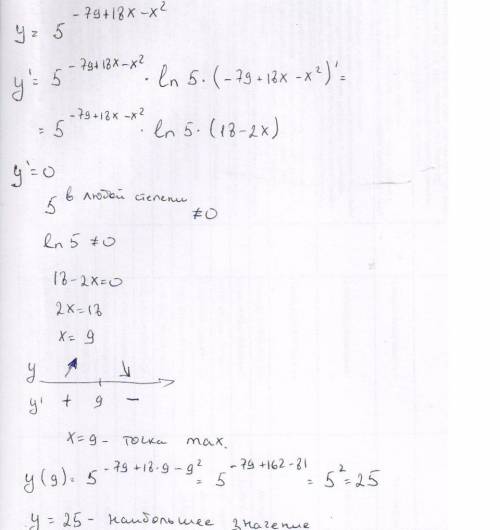 y = 5^{-79+18x-x^2}
y' = 5^{-79+18x-x^2} · ln 5 · (-79+18x-x^2)' =
= 5^{-79+18x-x^2} · ln 5 · (18-2x)
y' = 0
5^{в любой степени} ≠ 0
ln 5 ≠ 0
18-2x=0
2x=18
x = 9
y ↗ ↘
y' + 9 −
x=9 - точка max.
y(9) = 5^{-79+18·9-9^2} = 5^{-79+162-81} = 5^2 = 25
y = 25 - наибольшее значение